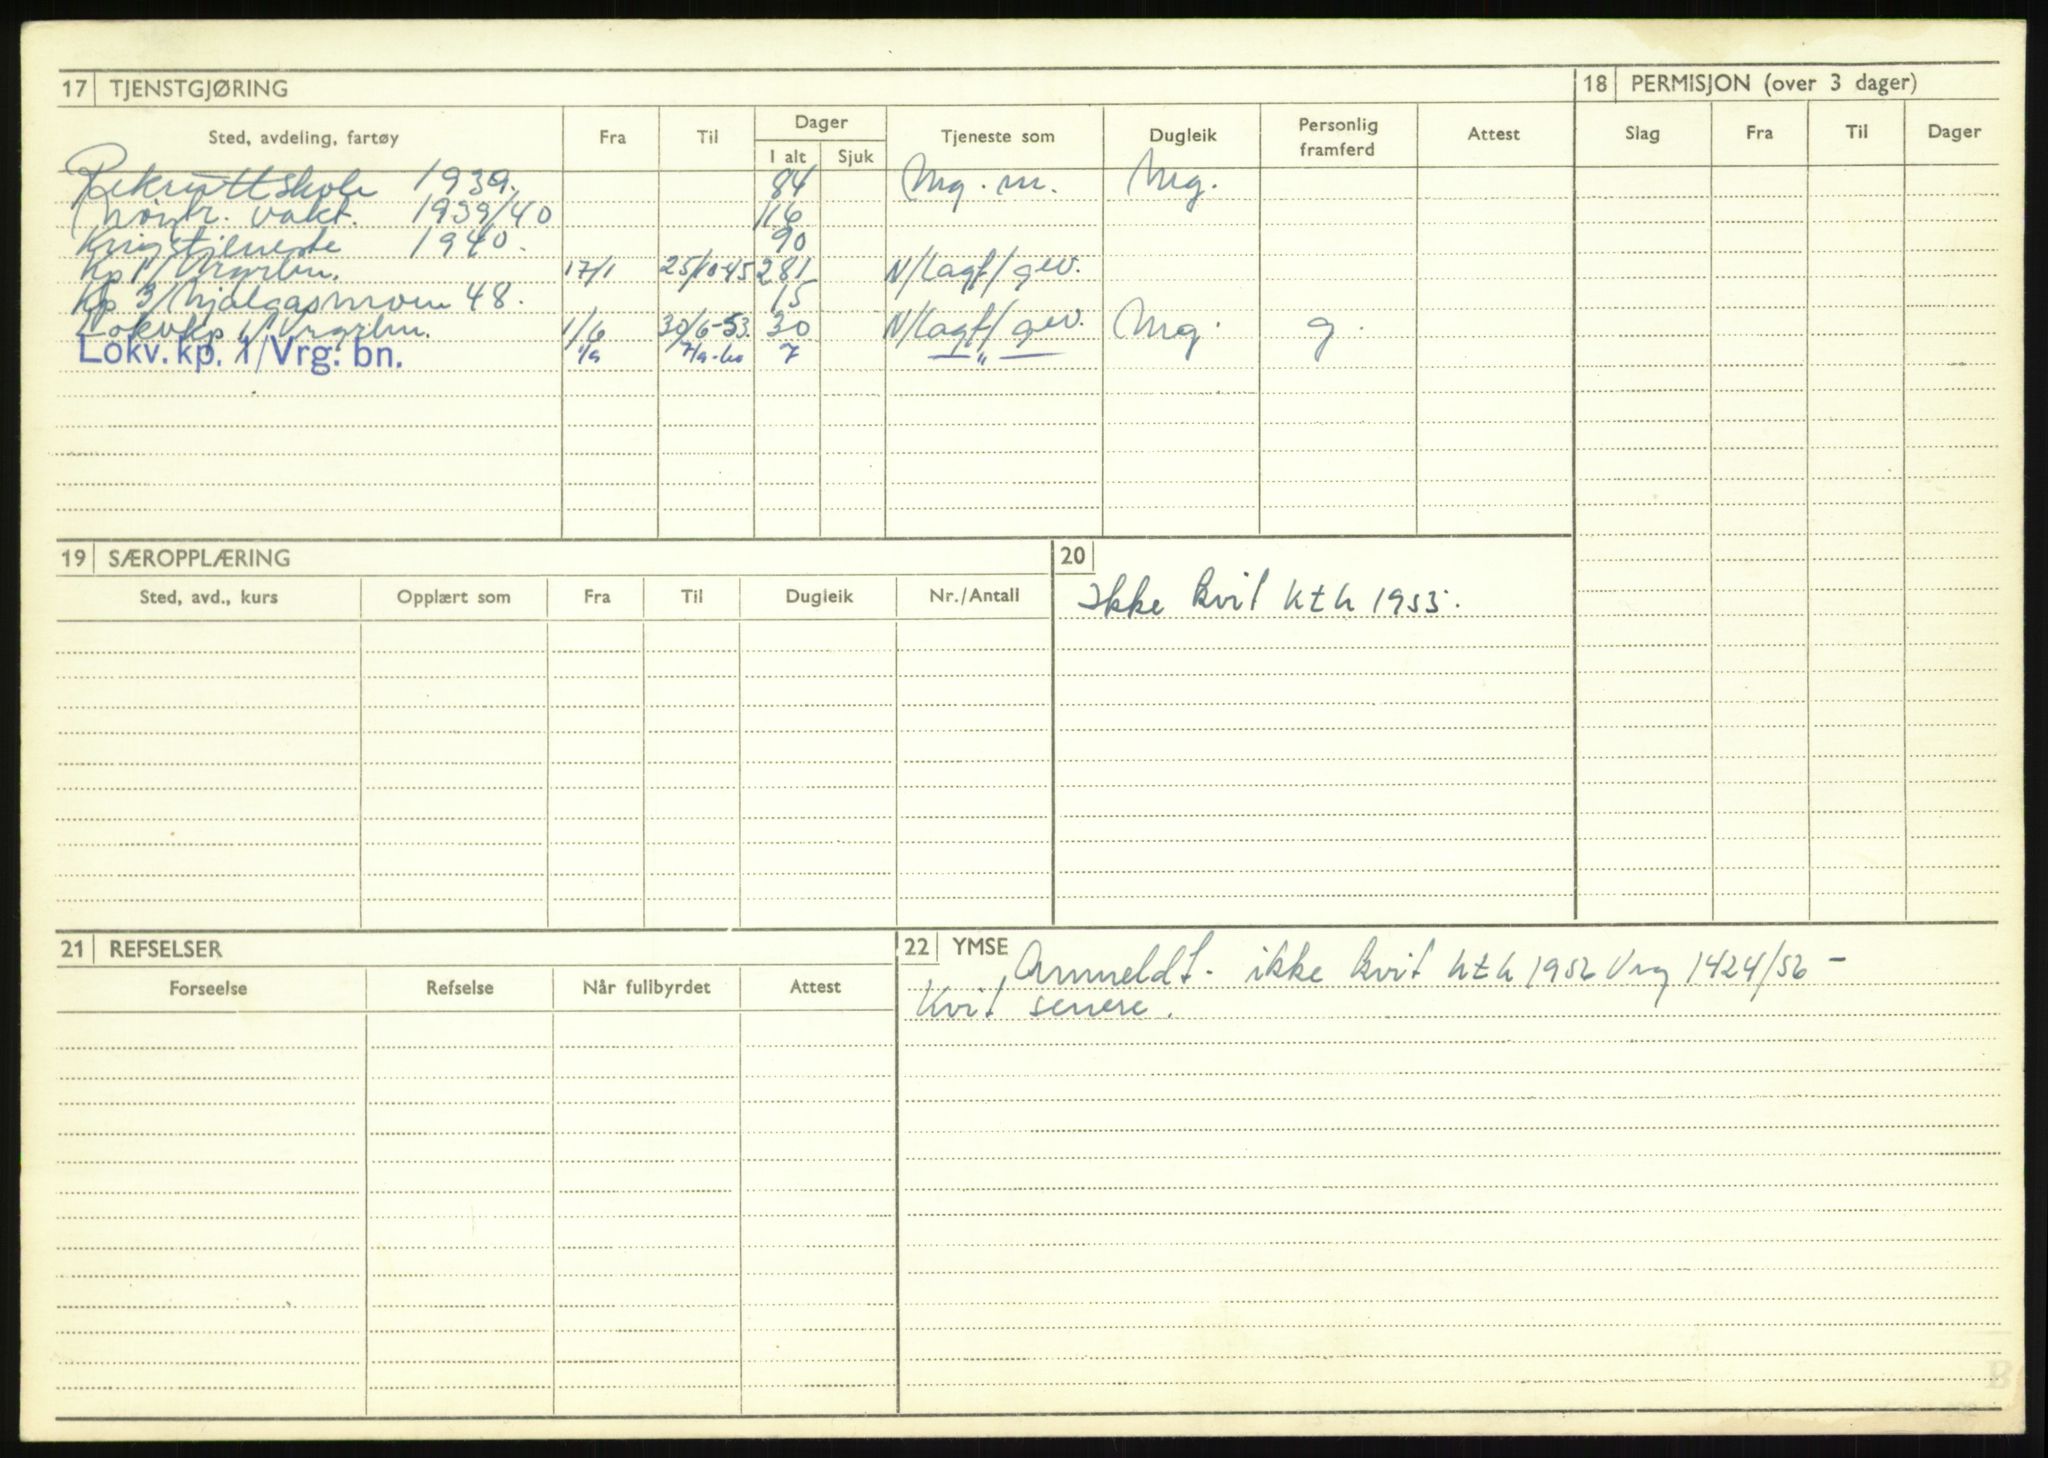 17 TJENSTGJØRING
18 PERMISJON (over 3 dager)
Sted, avdeling, fartøy Fra Til Dager Tjeneste som Dugleik Personlig framferd Attest
I alt Sjuk
Slag Fra Til Dager
Rekruttskole 1939. 84 Mg. m. Mg.
Nøytr. vakt. 1939/40 116
Krigstjeneste 1940. 90
Kp 1/Vrgrbn. 17/1 25/10-45 281 N/Lagf/gev.
Kp 3/ 48. 15
Lokvkp 1/Vrgrbn. 1/6 30/6-53. 30 N/Lagf/gev. Mg. g.
Lokv. kp. 1/Vrg. bn. 1/9 7/9-60 7 — " —
19 SÆROPPLÆRING
20
Sted, avd., kurs Opplært som Fra Til Dugleik Nr./Antall
Ikke kvit htk 1955.
21 REFSELSER
22 YMSE
Forseelse Refselse Når fullbyrdet Attest
Anmeldt. ikke kvit htk 1956 Vrg 1424/56 –
Kvit senere.